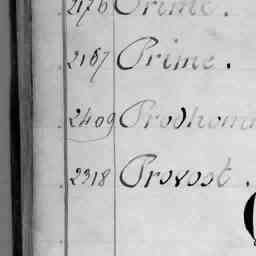 2176 Prime.
2167 Prime.
2409 Prodhom
2318 Provost.